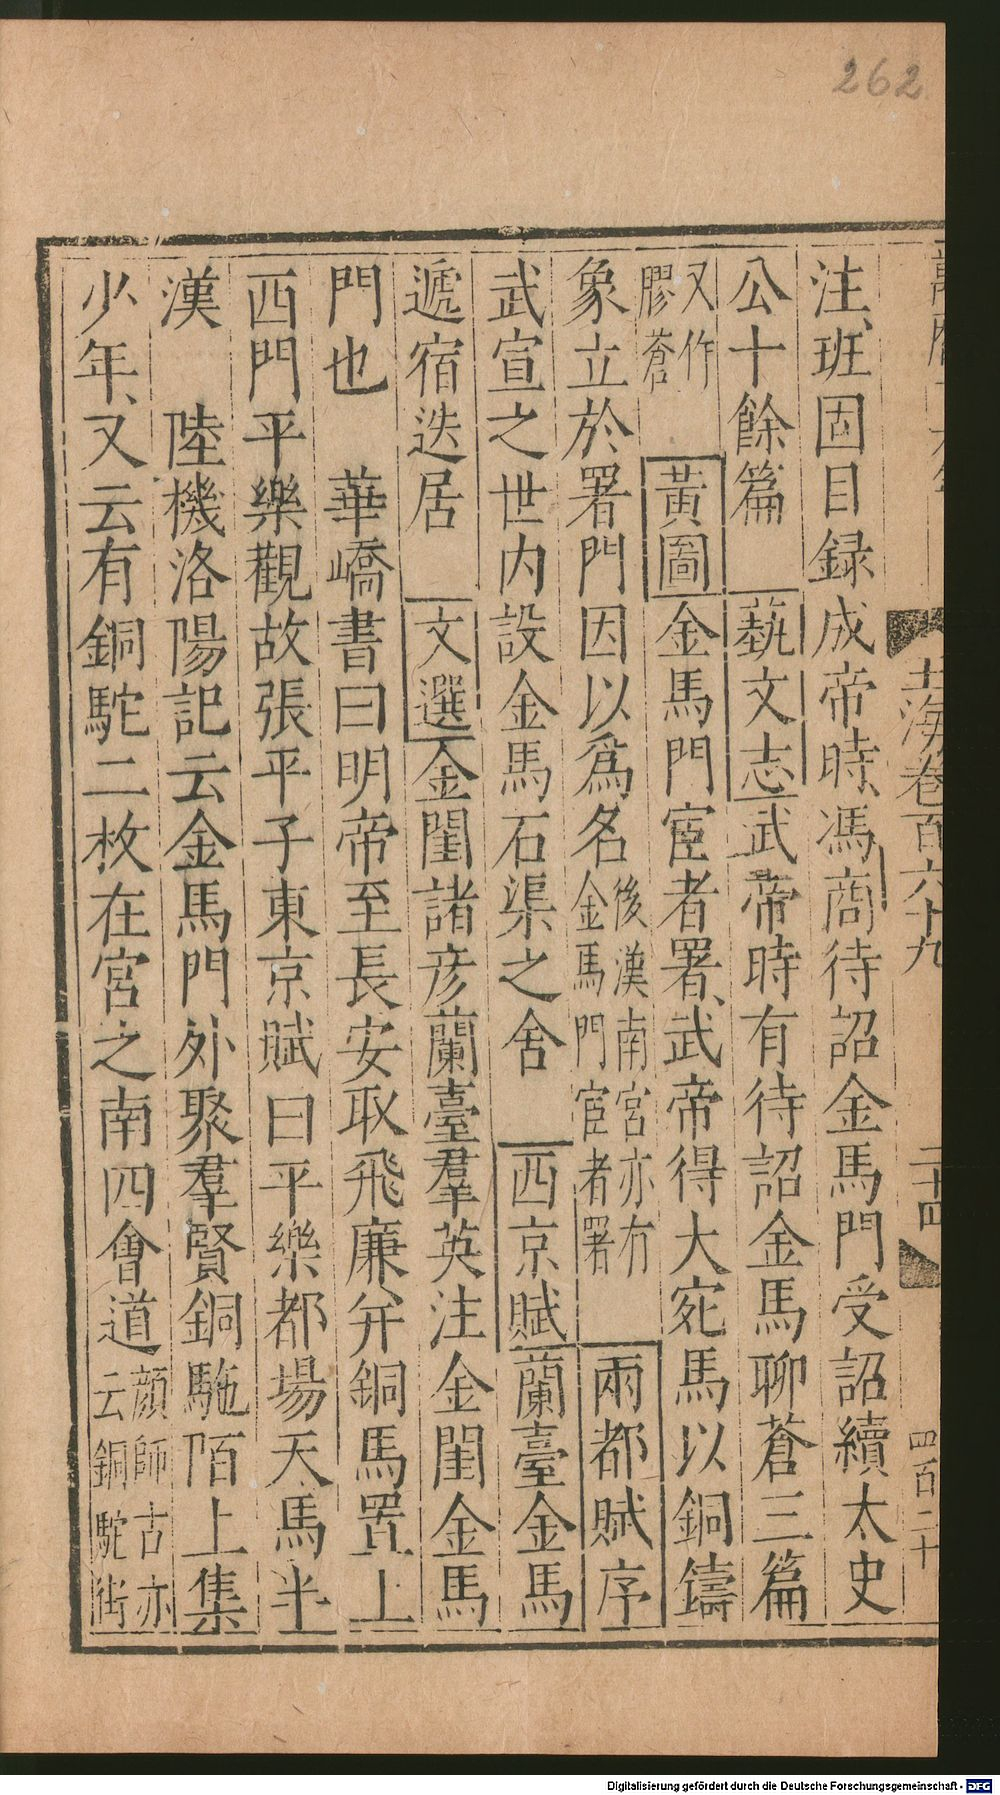 262
玉海卷百六十九
二十四
四百二十
注、班固目録成帝時、馮商待詔金馬門受詔續太史
公十餘篇 藝文志武帝時有待詔金馬聊蒼三篇
又作
膠蒼
黃圖金馬門宦者署、武帝得大宛馬以銅鑄
象立於署門因以爲名
後漢南宮亦有
金馬門宦者署
兩都賦序
武宣之世内設金馬石渠之舍 西京賦蘭臺金馬
遞宿迭居 文選金閨諸彦蘭臺羣英注金閨金馬
門也 華嶠書曰明帝至長安取飛廉、并銅馬置上
西門平樂觀故張平子東京賦曰平樂都場天馬半
漢 陸機洛陽記云金馬門外聚羣賢銅駞陌上集
少年、又云有銅駝二枚在宮之南四會道
顔師古亦
云銅駝街
Digitalisierung gefördert durch die Deutsche Forschungsgemeinschaft - DFG